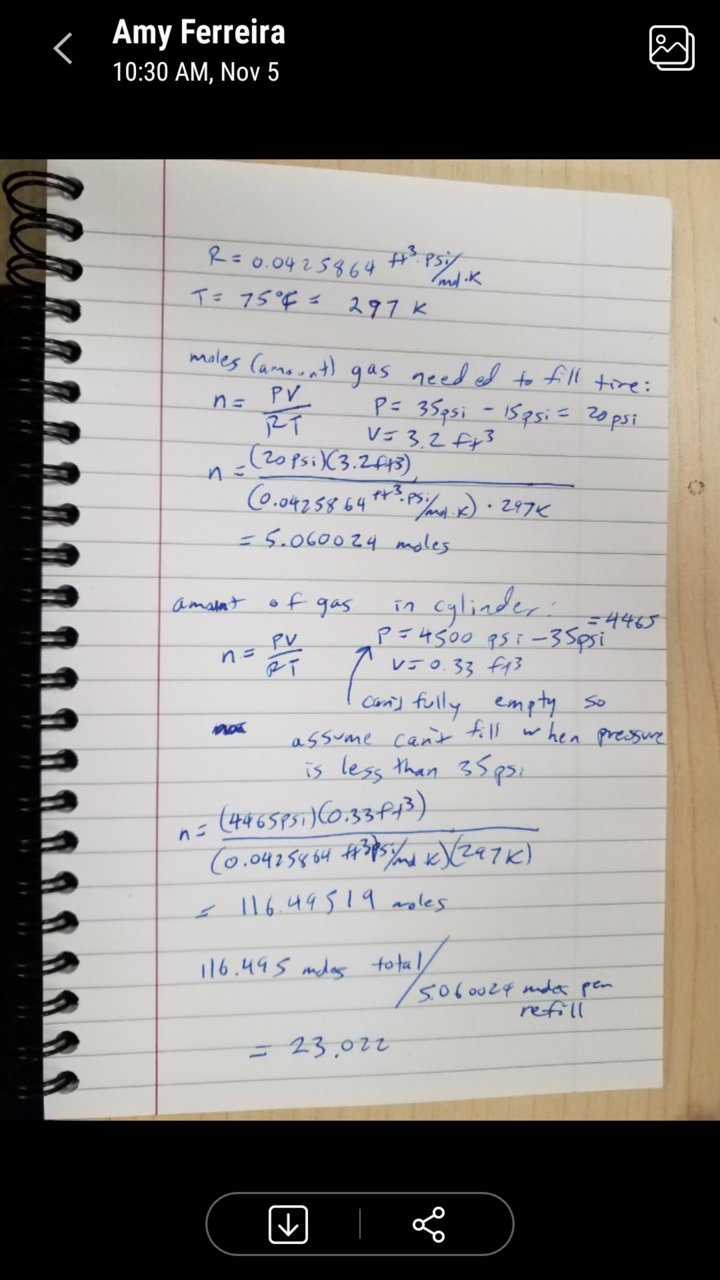 Amy Ferreira
10:30 AM, Nov 5
R = 0.0425864 ft³·psi/mol·K
T = 75°F = 297 K
moles (amount) gas needed to fill tire:
n = PV/RT P = 35psi - 15psi = 20psi
V = 3.2 ft³
n = (20psi)(3.2ft3)
(0.0425864 ft³·psi/mol·K) · 297K
= 5.060024 moles
amount of gas in cylinder:
= 4465
n = PV/RT P = 4500 psi - 35psi
V = 0.33 ft3
can't fully empty so
assume can't fill when pressure
is less than 35psi
n = (4465psi)(0.33ft3)
(0.0425864 ft³psi/mol K)(297K)
= 116.49519 moles
116.495 moles total/
5.060024 moles per
refill
= 23.022